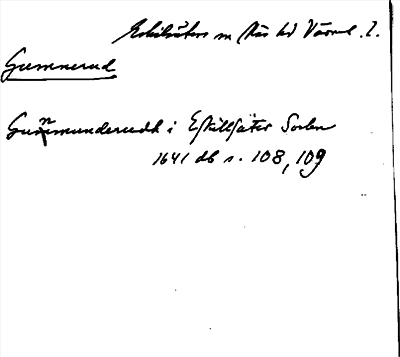 Eskilsäters sn Näs hd Värml. l.
Gummerud
Gunnmunderudh i Eskillsäter Sochn
1641 db s. 108, 109